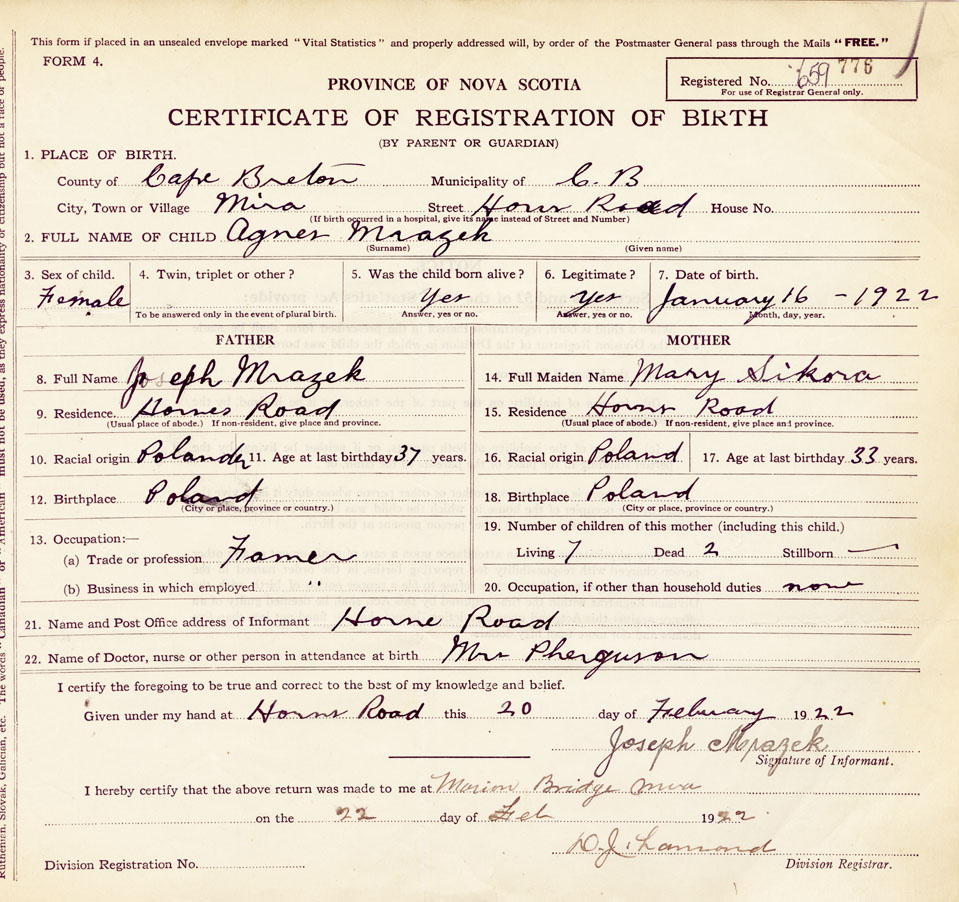 This form if placed in an unsealed envelope marked "Vital Statistics" and properly addressed will, by order of the Postmaster General pass through the Mails "FREE."
FORM 4.
Registered No. 659 776
For use of Registrar General only.
PROVINCE OF NOVA SCOTIA
CERTIFICATE OF REGISTRATION OF BIRTH
(BY PARENT OR GUARDIAN)
1. PLACE OF BIRTH.
County of Cape Breton Municipality of C. B
City, Town or Village Mira Street Horns Road House No.
(If birth occurred in a hospital, give its name instead of Street and Number)
2. FULL NAME OF CHILD Agnes Mrazek
(Surname) (Given name)
3. Sex of child. 4. Twin, triplet or other? 5. Was the child born alive? 6. Legitimate? 7. Date of birth.
Female Yes Yes January 16 - 1922
To be answered only in the event of plural birth. Answer, yes or no. Answer, yes or no. Month, day, year.
FATHER MOTHER
8. Full Name Joseph Mrazek 14. Full Maiden Name Mary Sikora
9. Residence. Hornes Road 15. Residence Horns Road
(Usual place of abode.) If non-resident, give place and province. (Usual place of abode.) If non-resident, give place and province.
10. Racial origin Polander 11. Age at last birthday 37 years. 16. Racial origin Poland 17. Age at last birthday 33 years.
12. Birthplace Poland 18. Birthplace Poland
(City or place, province or country.) (City or place, province or country.)
19. Number of children of this mother (including this child.)
13. Occupation:—
(a) Trade or profession Famer Living 7 Dead 2 Stillborn —
(b) Business in which employed " 20. Occupation, if other than household duties none
21. Name and Post Office address of Informant Horne Road
22. Name of Doctor, nurse or other person in attendance at birth Mrs Pherguson
I certify the foregoing to be true and correct to the best of my knowledge and belief.
Given under my hand at Horns Road this 20 day of February 1922
Joseph Mrazek
Signature of Informant.
I hereby certify that the above return was made to me at Marion Bridge Mira
on the 22 day of Feb 1922
D. J. Lamond
Division Registration No. Division Registrar.
Ruthenian, Slovak, Galician, etc. The words "Canadian" or "American" must not be used, as they express nationality or citizenship but not a race or people.